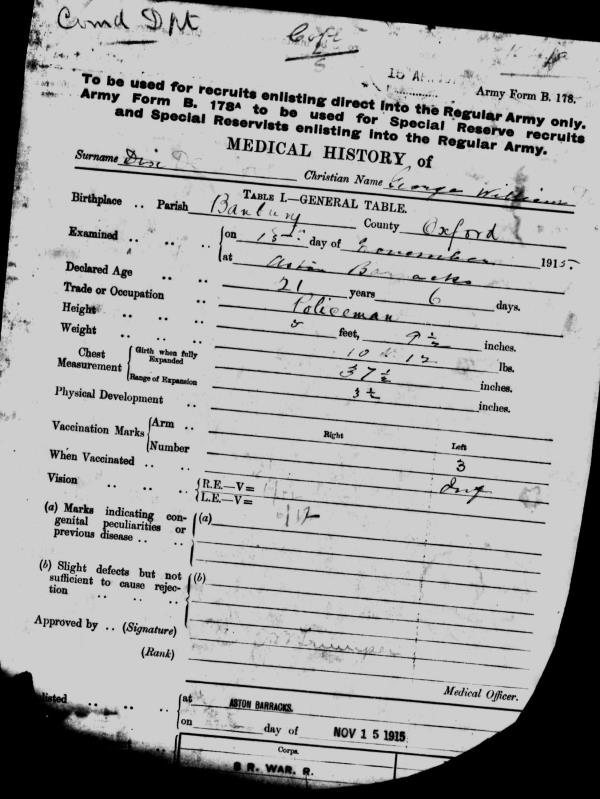 Comd Dpt
Army Form B. 178.
To be used for recruits enlisting direct into the Regular Army only.
Army Form B. 178A to be used for Special Reserve recruits
and Special Reservists enlisting into the Regular Army.
MEDICAL HISTORY of
Surname Christian Name George William
TABLE I.—GENERAL TABLE.
Birthplace .. Parish Banbury County Oxford
Examined .. .. .. { on 15th day of November 1915.
at Aston Barracks
Declared Age .. .. 21 years 6 days.
Trade or Occupation .. Policeman
Height .. .. .. 5 feet, 9 1/2 inches.
Weight .. .. .. 10 12 lbs.
Chest Measurement { Girth when fully Expanded 37 1/2 inches.
Range of Expansion 3 1/2 inches.
Physical Development ..
Right Left
Vaccination Marks { Arm ..
Number 3
When Vaccinated .. .. Inf
Vision .. .. .. { R.E.—V=
L.E.—V=
(a) Marks indicating con-
genital peculiarities or
previous disease .. .. { (a)
(b) Slight defects but not
sufficient to cause rejec-
tion .. .. .. { (b)
Approved by .. (Signature)
(Rank)
Medical Officer.
listed .. .. .. { at ASTON BARRACKS.
on day of NOV 15 1915
Corps.
R. WAR. R.